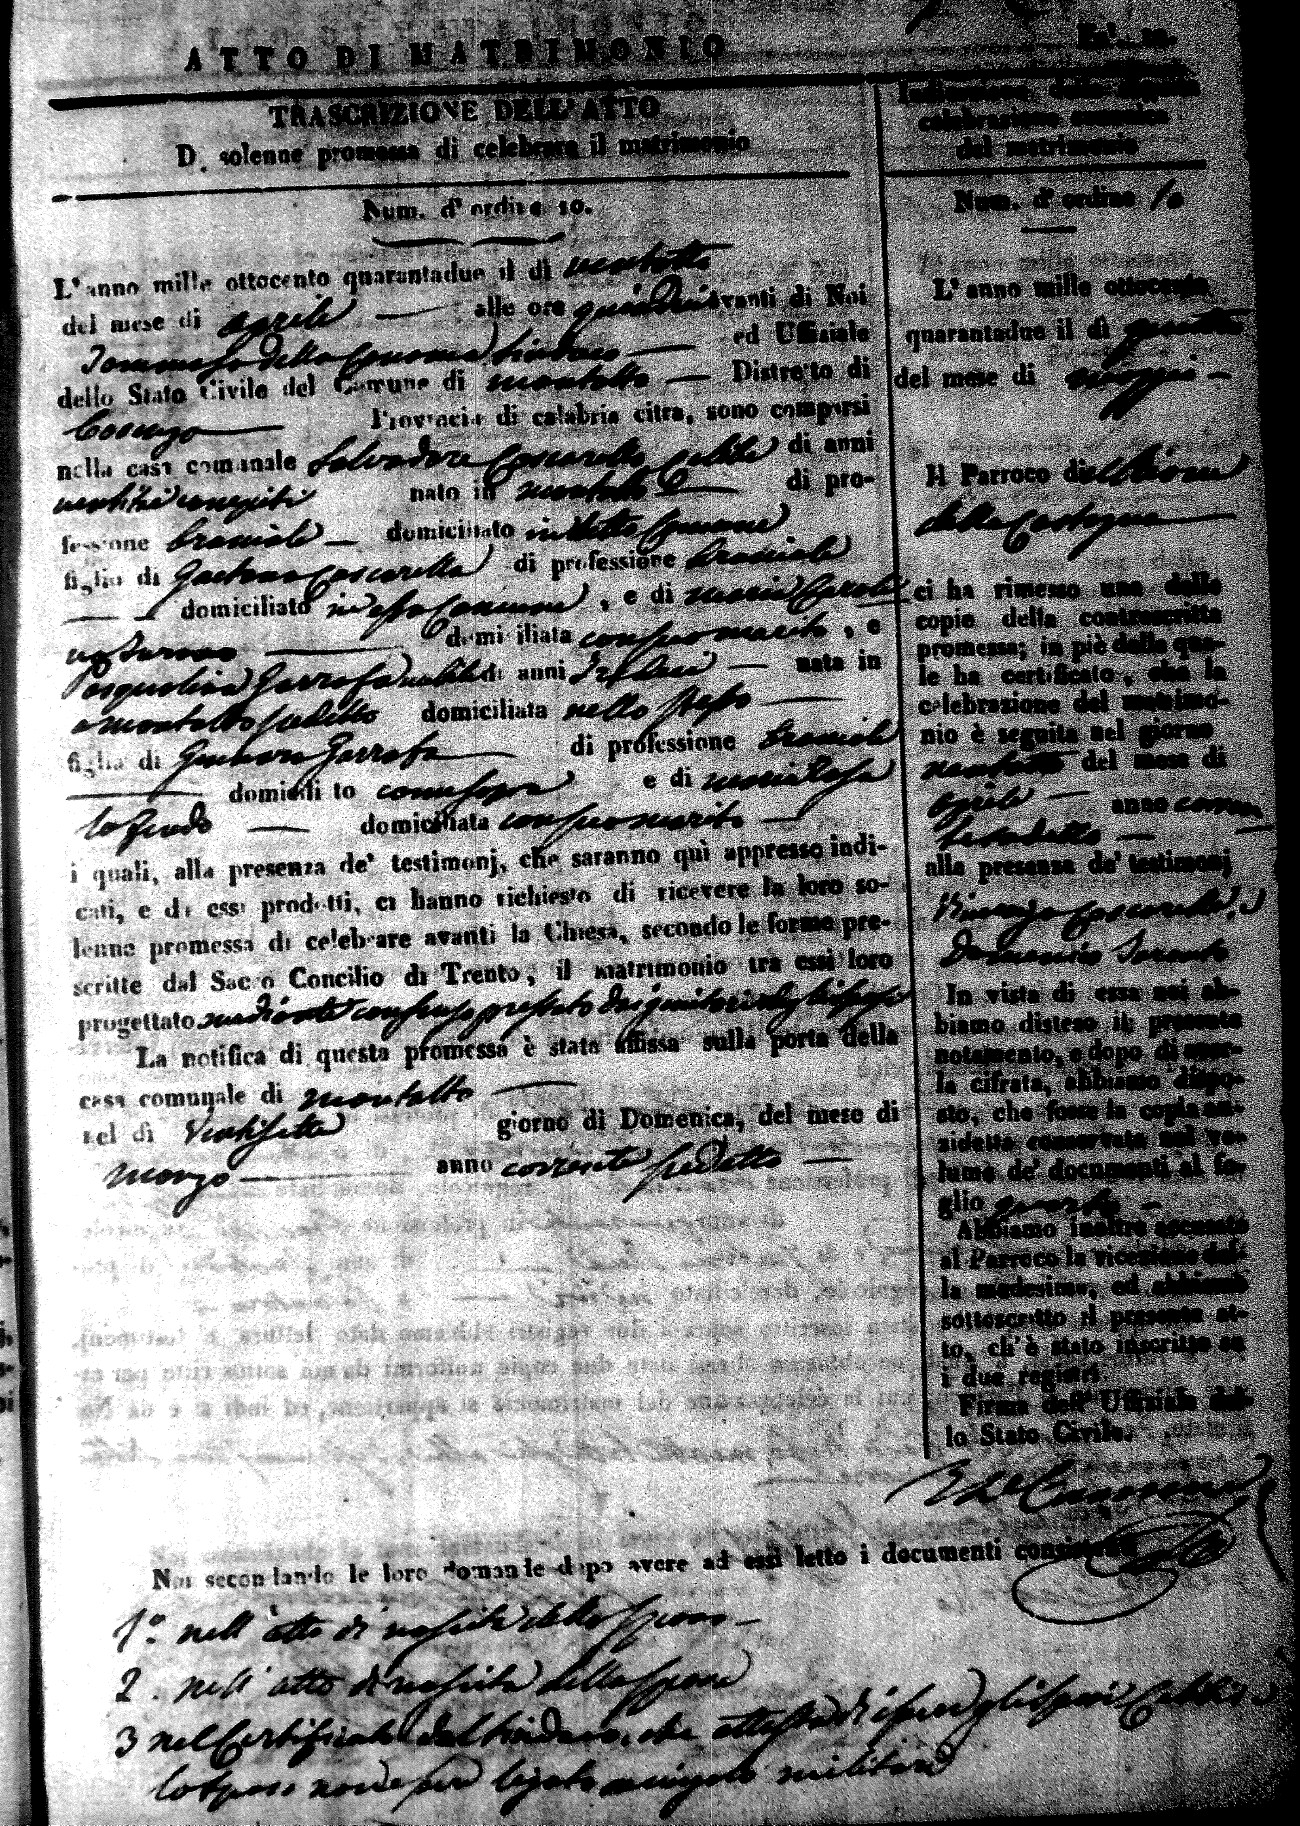 ATTO DI MATRIMONIO
TRASCRIZIONE DELL'ATTO
D. solenne promessa di celebrare il matrimonio
Num. d'ordine 10.
L'anno mille ottocento quarantadue il dì
del mese di aprile alle ore quindici avanti di Noi
Tommaso della Sindaco ed Uffiziale
dello Stato Civile del Comune di montalto Distretto di
Cosenza Provincia di calabria citra, sono comparsi
nella casa comunale Salvadore Coscarella Celibe di anni
ventitrè compiti nato in montalto di pro-
fessione bracciale domiciliato in detto Comune
figlio di Gaetano Coscarella di professione bracciale
domiciliato in esso Comune, e di maria Carol
domiciliata con suo marito, e
Pasqualina Garrafa nubile di anni nata in
montalto sudetto domiciliata nello stesso
figlia di Gennaro Garrafa di professione bracciale
domiciliato come sopra e di maria Rosa
Lofredo domiciliata con suo marito
i quali, alla presenza de' testimonj, che saranno quì appresso indi-
cati, e da essi prodotti, ci hanno richiesto di ricevere la loro so-
lenne promessa di celebrare avanti la Chiesa, secondo le forme pre-
scritte dal Sacro Concilio di Trento, il matrimonio tra essi loro
progettato mediante consenso prestato dai genitori degli sposi
La notifica di questa promessa è stata affissa sulla porta della
casa comunale di montalto
nel dì Ventisette giorno di Domenica, del mese di
marzo anno corrente sudetto
Noi secondando le loro domande dopo avere ad essi letto i documenti
1.º nell'atto di nascita dello sposo
2. nell'atto di nascita della sposa
3 nel Certificato del Sindaco, che attesta di essere gli sposi Celibi, e
lo sposo non essere legato a vincolo militare
Indicazione della
celebrazione canonica
del matrimonio
Num. d'ordine 10
L'anno mille ottocento
quarantadue il dì
del mese di maggio
Il Parroco di
della
ci ha rimesso una delle
copie della controscritta
promessa; in piè della qua-
le ha certificato, che la
celebrazione del matrimo-
nio è seguita nel giorno
ventotto del mese di
aprile anno corrente
sudetto
alla presenza de' testimonj
Vincenzo Coscarella, e
Domenico
In vista di essa noi ab-
biamo disteso il presente
notamento, e dopo di aver-
la cifrata, abbiamo dispo-
sto, che fosse la copia an-
zidetta conservata nel vo-
lume de' documenti al fo-
glio quarto
Abbiamo inoltre accusato
al Parroco la ricezione del-
la medesima, ed abbiamo
sottoscritto il presente at-
to, ch'è stato inscritto su
i due registri.
Firma dell'Uffiziale del-
lo Stato Civile.